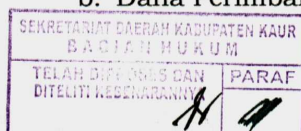 b. Dana Perimba
SEKRETARIAT DAERAH KABUPATEN KAUR
BAGIAN HUKUM
TELAH DIPROSES DAN
DITELITI KEBENARANNYA
PARAF